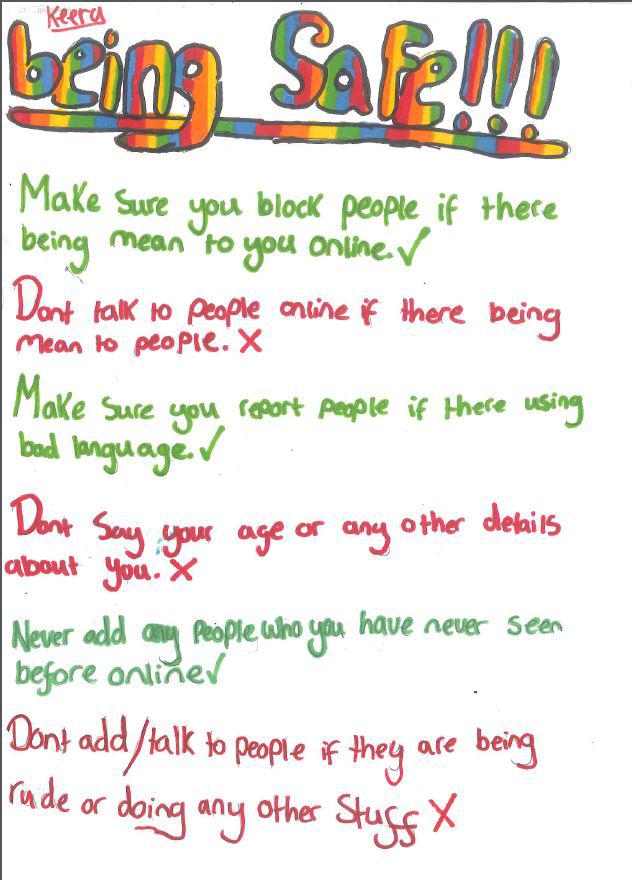 Keera
being Safe!!!
Make Sure you block people if there
being mean to you online.✓
Dont talk to people online if there being
mean to people. X
Make Sure you report people if there using
bad language.✓
Dont Say your age or any other details
about you. X
Never add any people who you have never seen
before online✓
Dont add/talk to people if they are being
rude or doing any other Stuff X